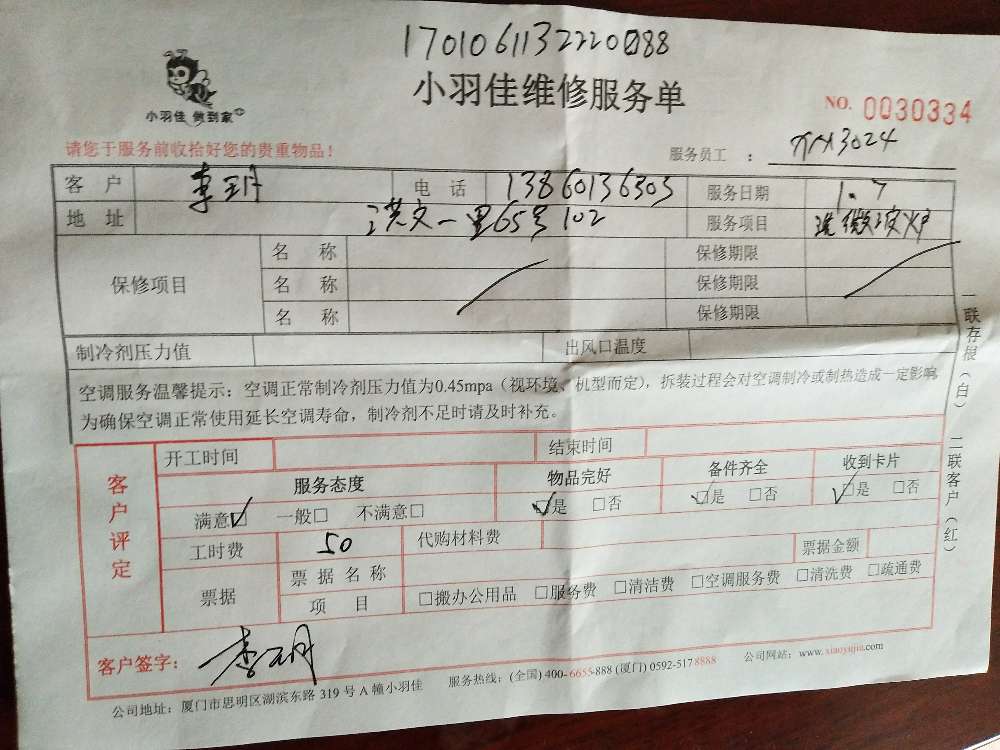 1701061132220088
小羽佳维修服务单
小羽佳 做到家
NO. 0030334
请您于服务前收拾好您的贵重物品！
服务员工 ： 3024
客 户 李玥 电 话 13860136303 服务日期 1.7
地 址 洪文一里65号102 服务项目 洗微波炉
保修项目 名 称 保修期限
名 称 保修期限
名 称 保修期限
制冷剂压力值 出风口温度
空调服务温馨提示：空调正常制冷剂压力值为0.45mpa（视环境、机型而定），拆装过程会对空调制冷或制热造成一定影响
为确保空调正常使用延长空调寿命，制冷剂不足时请及时补充。
一联存根（白） 二联客户（红）
客户评定
开工时间 结束时间
服务态度 物品完好 备件齐全 收到卡片
满意☑ 一般□ 不满意□ ☑是 □否 ☑是 □否 ☑是 □否
工时费 50 代购材料费 票据金额
票据 票 据 名 称
项 目 □搬办公用品 □服务费 □清洁费 □空调服务费 □清洗费 □疏通费
客户签字： 李玥
公司地址：厦门市思明区湖滨东路 319 号 A 幢小羽佳 服务热线：(全国) 400-6655-888 (厦门) 0592-5178888 公司网站：www.xiaoyujia.com